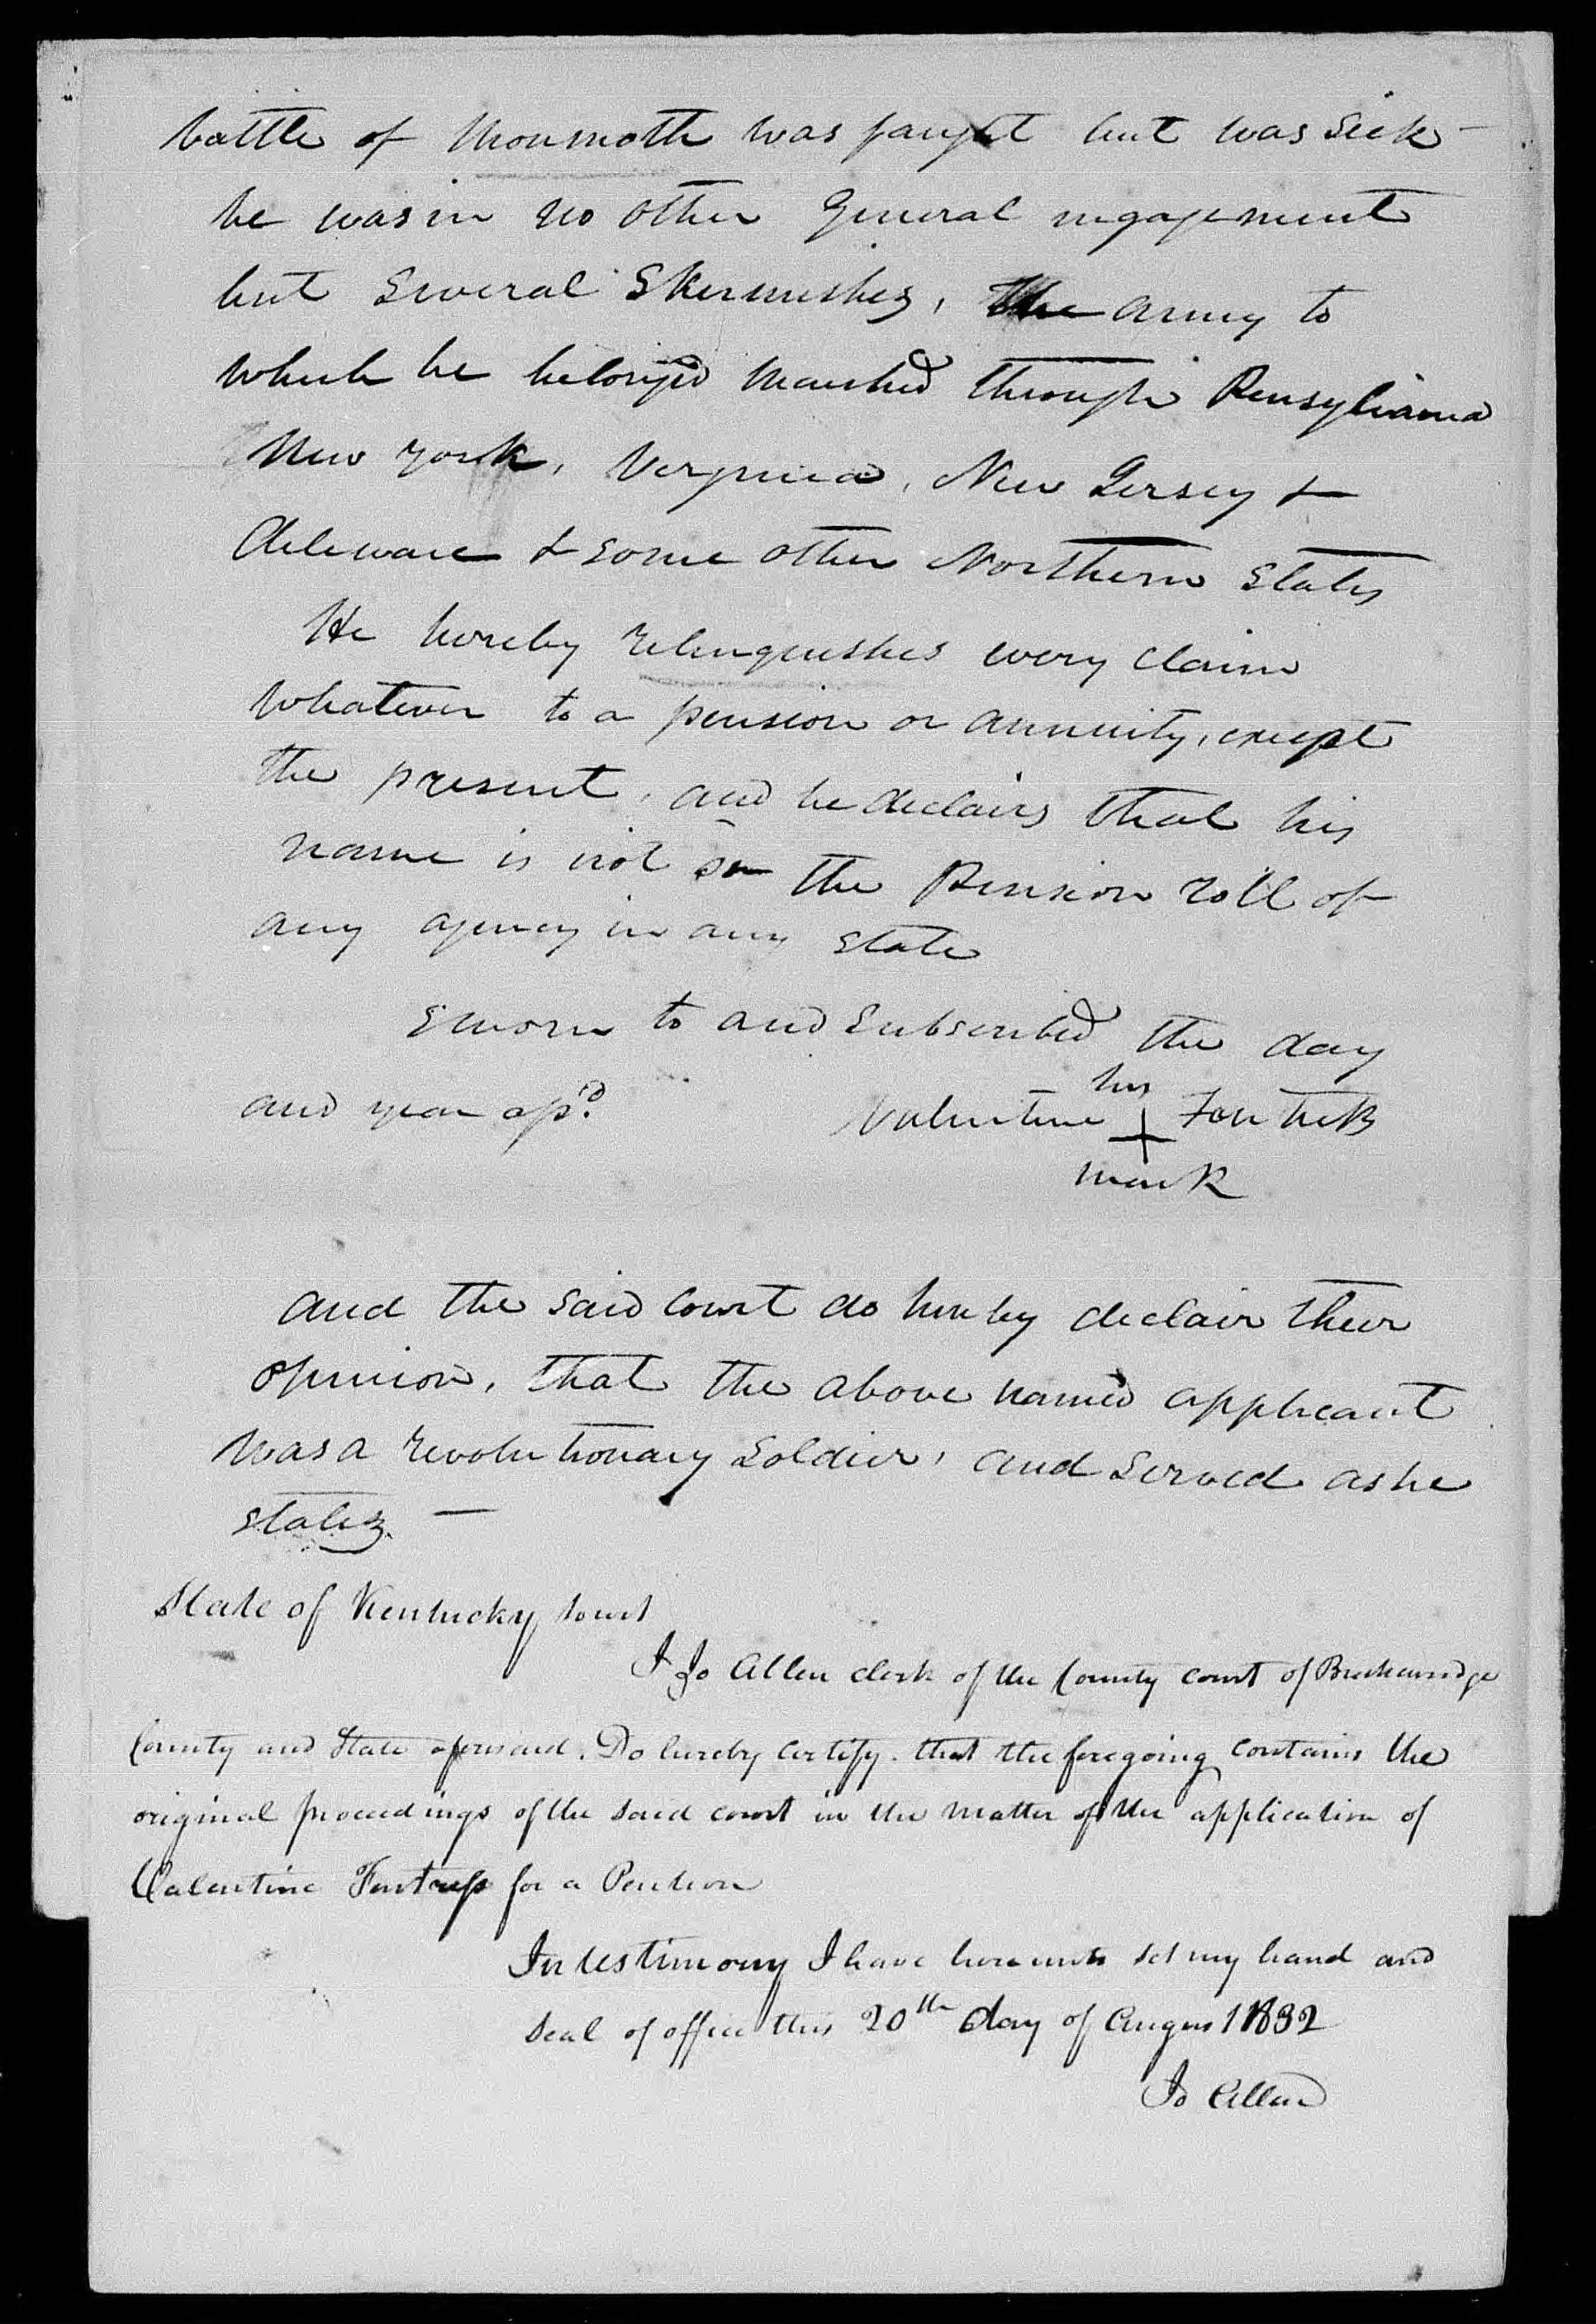 battle of Monmoth was faught but was sick -
he was in no other General ingagement
but several Skirmishes, the army to
which he belonged marched through Pensylvania
New york, Verginia, New Jersey &
Deleware & some other Northern States
He hereby relinquishes every claim
whatever to a pension or annuity, except
the present, and he declairs that his
name is not on the Pension roll of
any agency in any state
Sworn to and Subscribed the day
and year afsd.
his
Valentine + Fortress
mark
and the said Court do hereby declair their
opinion, that the above named applicant
was a revolutionary Soldier, and served as he
states. —
State of Kentucky towit
I Jo Allen clerk of the County court of Breckenridge
County and State aforesaid. Do hereby certify. that the foregoing contains the
original proceedings of the said court in the matter of the application of
Valentine Fortress for a Pention
In testimony I have hereunto set my hand and
seal of office this 20th day of August 1832
Jo Allen